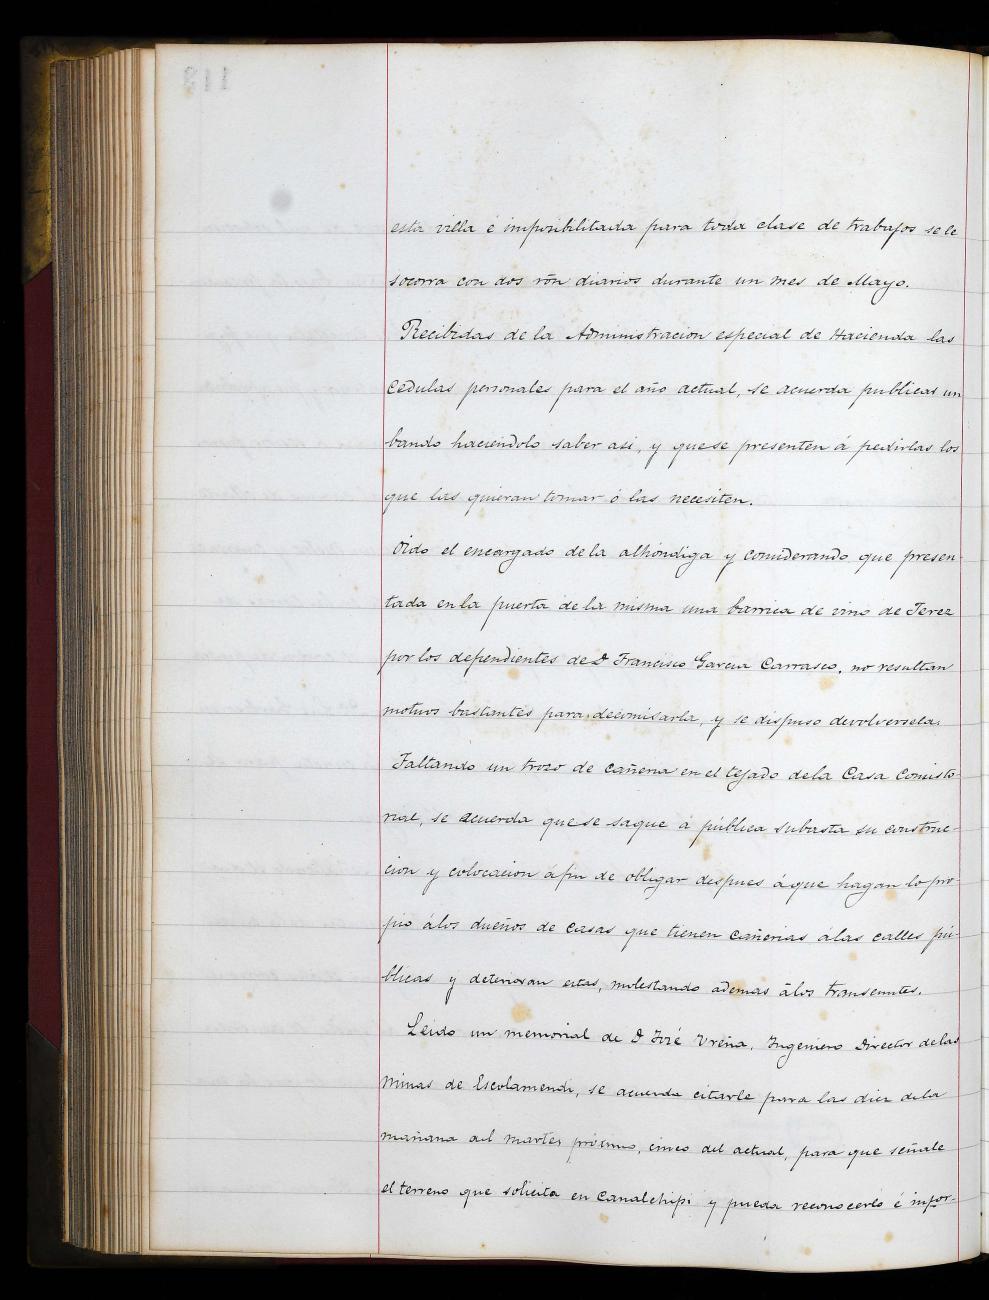 esta villa é imposibilitada para toda clase de trabajos se le
socorra con dos rõn diarios durante un mes de Mayo.
Recibidas de la Administracion especial de Hacienda las
cedulas personales para el año actual, se acuerda publicar un
bando haciendolo saber asi, y que se presenten á pedirlas los
que las quieran tomar ó las necesiten.
Oido el encargado de la alhóndiga y considerando que presen-
tada en la puerta de la misma una barrica de vino de Jerez
por los dependientes de D Francisco Garcia Carrasco, no resultan
motivos bastantes para decomisarla, y se dispuso devolversela.
Faltando un trozo de cañeria en el tejado de la Casa Consisto-
rial, se acuerda que se saque á pública subasta su construc-
cion y colocacion á fin de obligar despues á que hagan lo pro-
pio á los dueños de casas que tienen cañerias á las calles pú-
blicas y deterioran estas, molestando ademas á los transeuntes.
Leido un memorial de D José Ureña, Ingeniero Director de las
Minas de Escolamendi, se acuerda citarle para las diez de la
mañana del martes prósimo, cinco del actual, para que señale
el terreno que solicita en Canalechipi y pueda reconocerlo é infor-